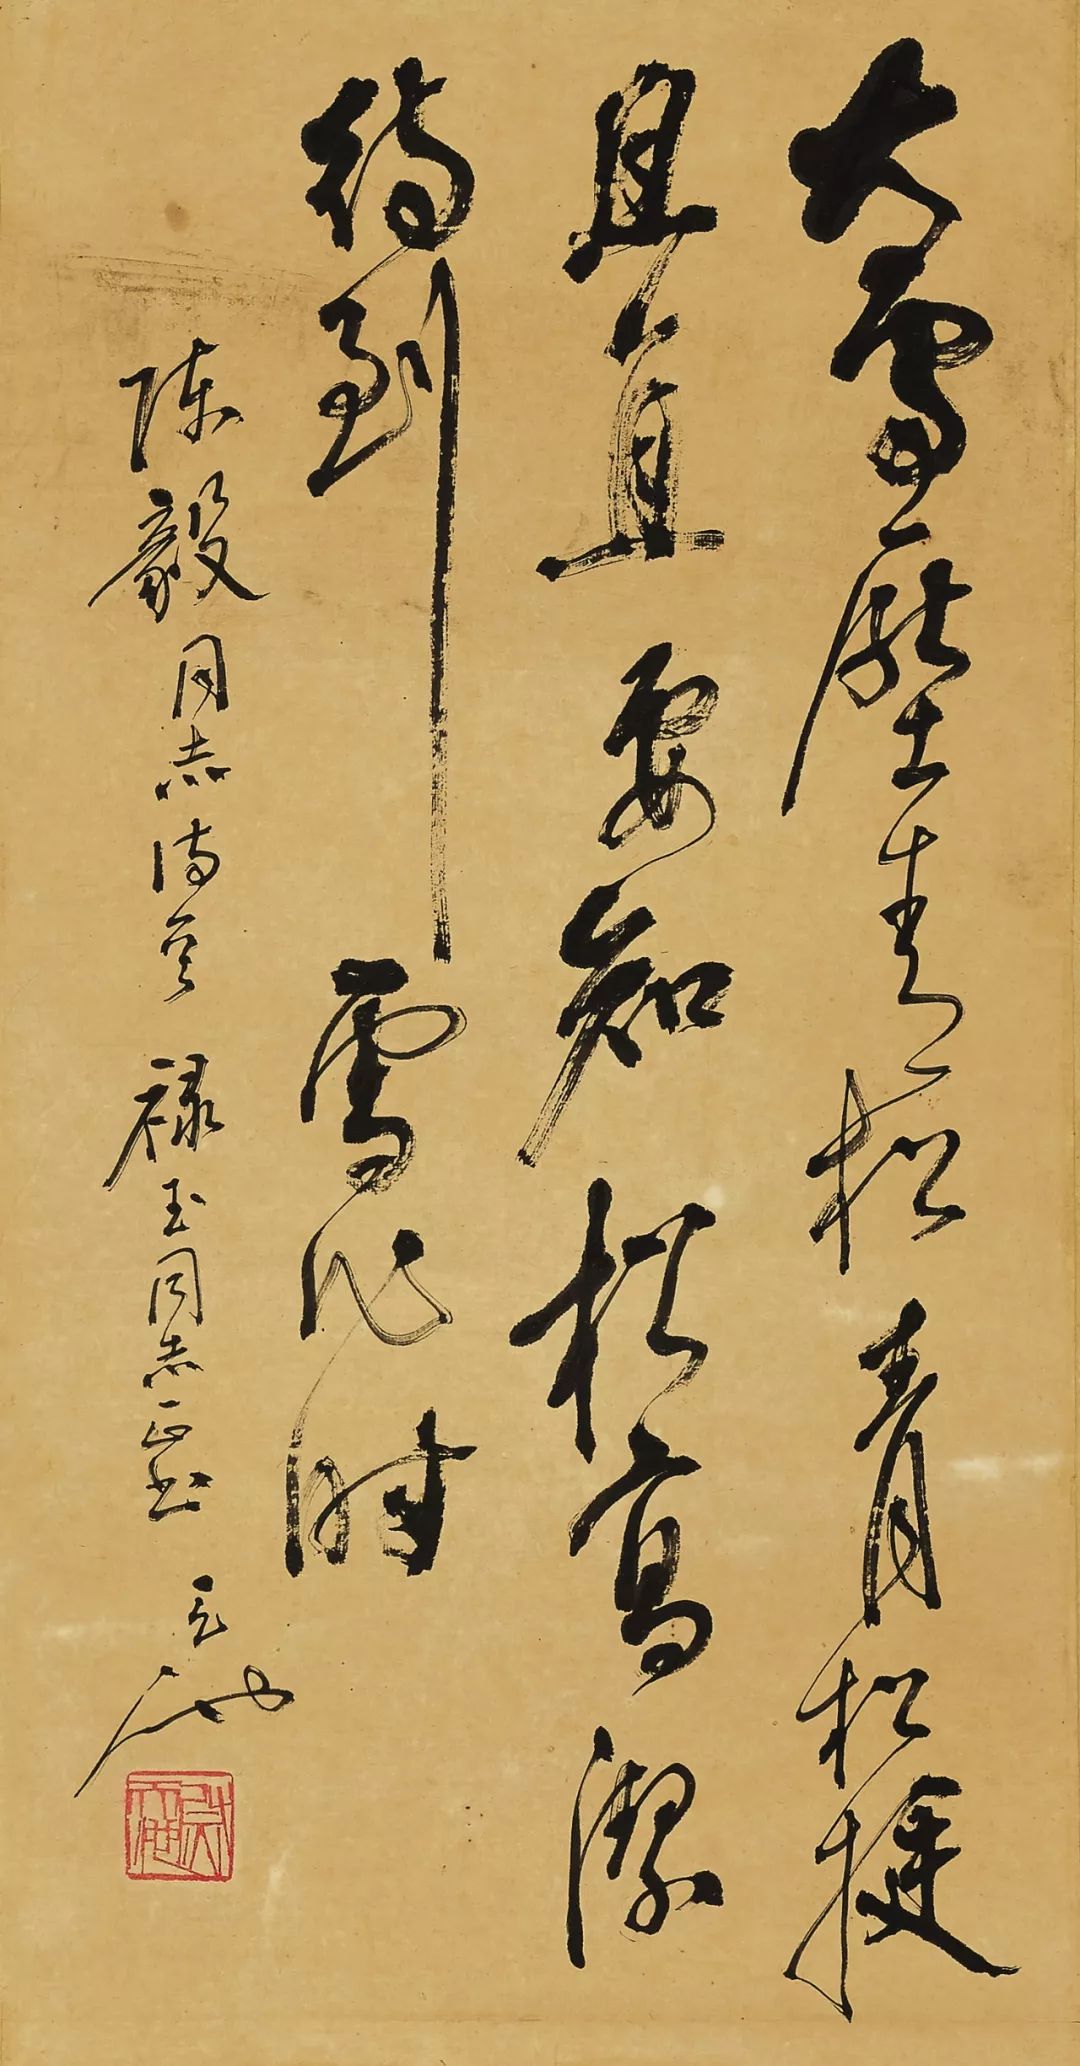 大雪壓青松青松挺
且直要知松高潔
待到雪化時
陳毅同志詩 祿玉同志正